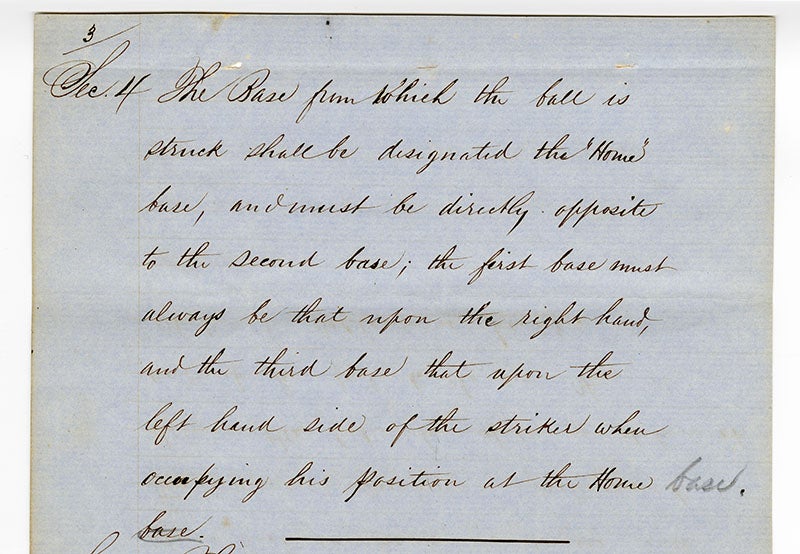 3
Sec. 4 The Base from Which the ball is
struck shall be designated the "Home"
base, and must be directly opposite
to the second base; the first base must
always be that upon the right hand,
and the third base that upon the
left hand side of the striker when
occupying his position at the Home base.
base.